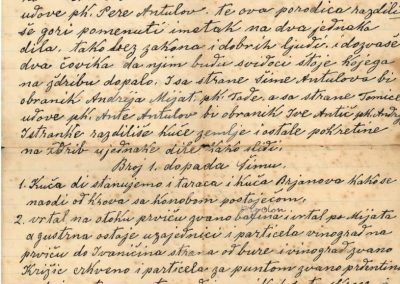 udove pk. Pere Antulov. te ova porodica razdili
se gori pomenuti imetak na dva jednaka
dila. tako brez zakona i dobrih ljudi, i dozvaše
dva čovika da njim budu svidoci što je kojega
na ždribu dopalo. I sa strane Šime Antulova bi
obranik Andrija Mijat, pk. Tade, a sa strane Tomice
udove pk. Ante Antulov bi obranik Ive Antić pk. Andr
I stranke razdiliše kuće zemlje i ostale pokretine
na ždrib ujednake dile kako slidi:
Broj 1. dopada Šimu.
1. Kuća di stanujemo i taraca i kuća Brjanova kako se
naodi od krova sa konobom postojećom,
2. vrtal na otoku prviću zvano baština, vrtal po Mijata
a gustrna ostaje uzajednici i particela vinograd na
prviću do Ivaničina strana od bure i vinograd zvano
Križić crkveno i particela za puntom zvano